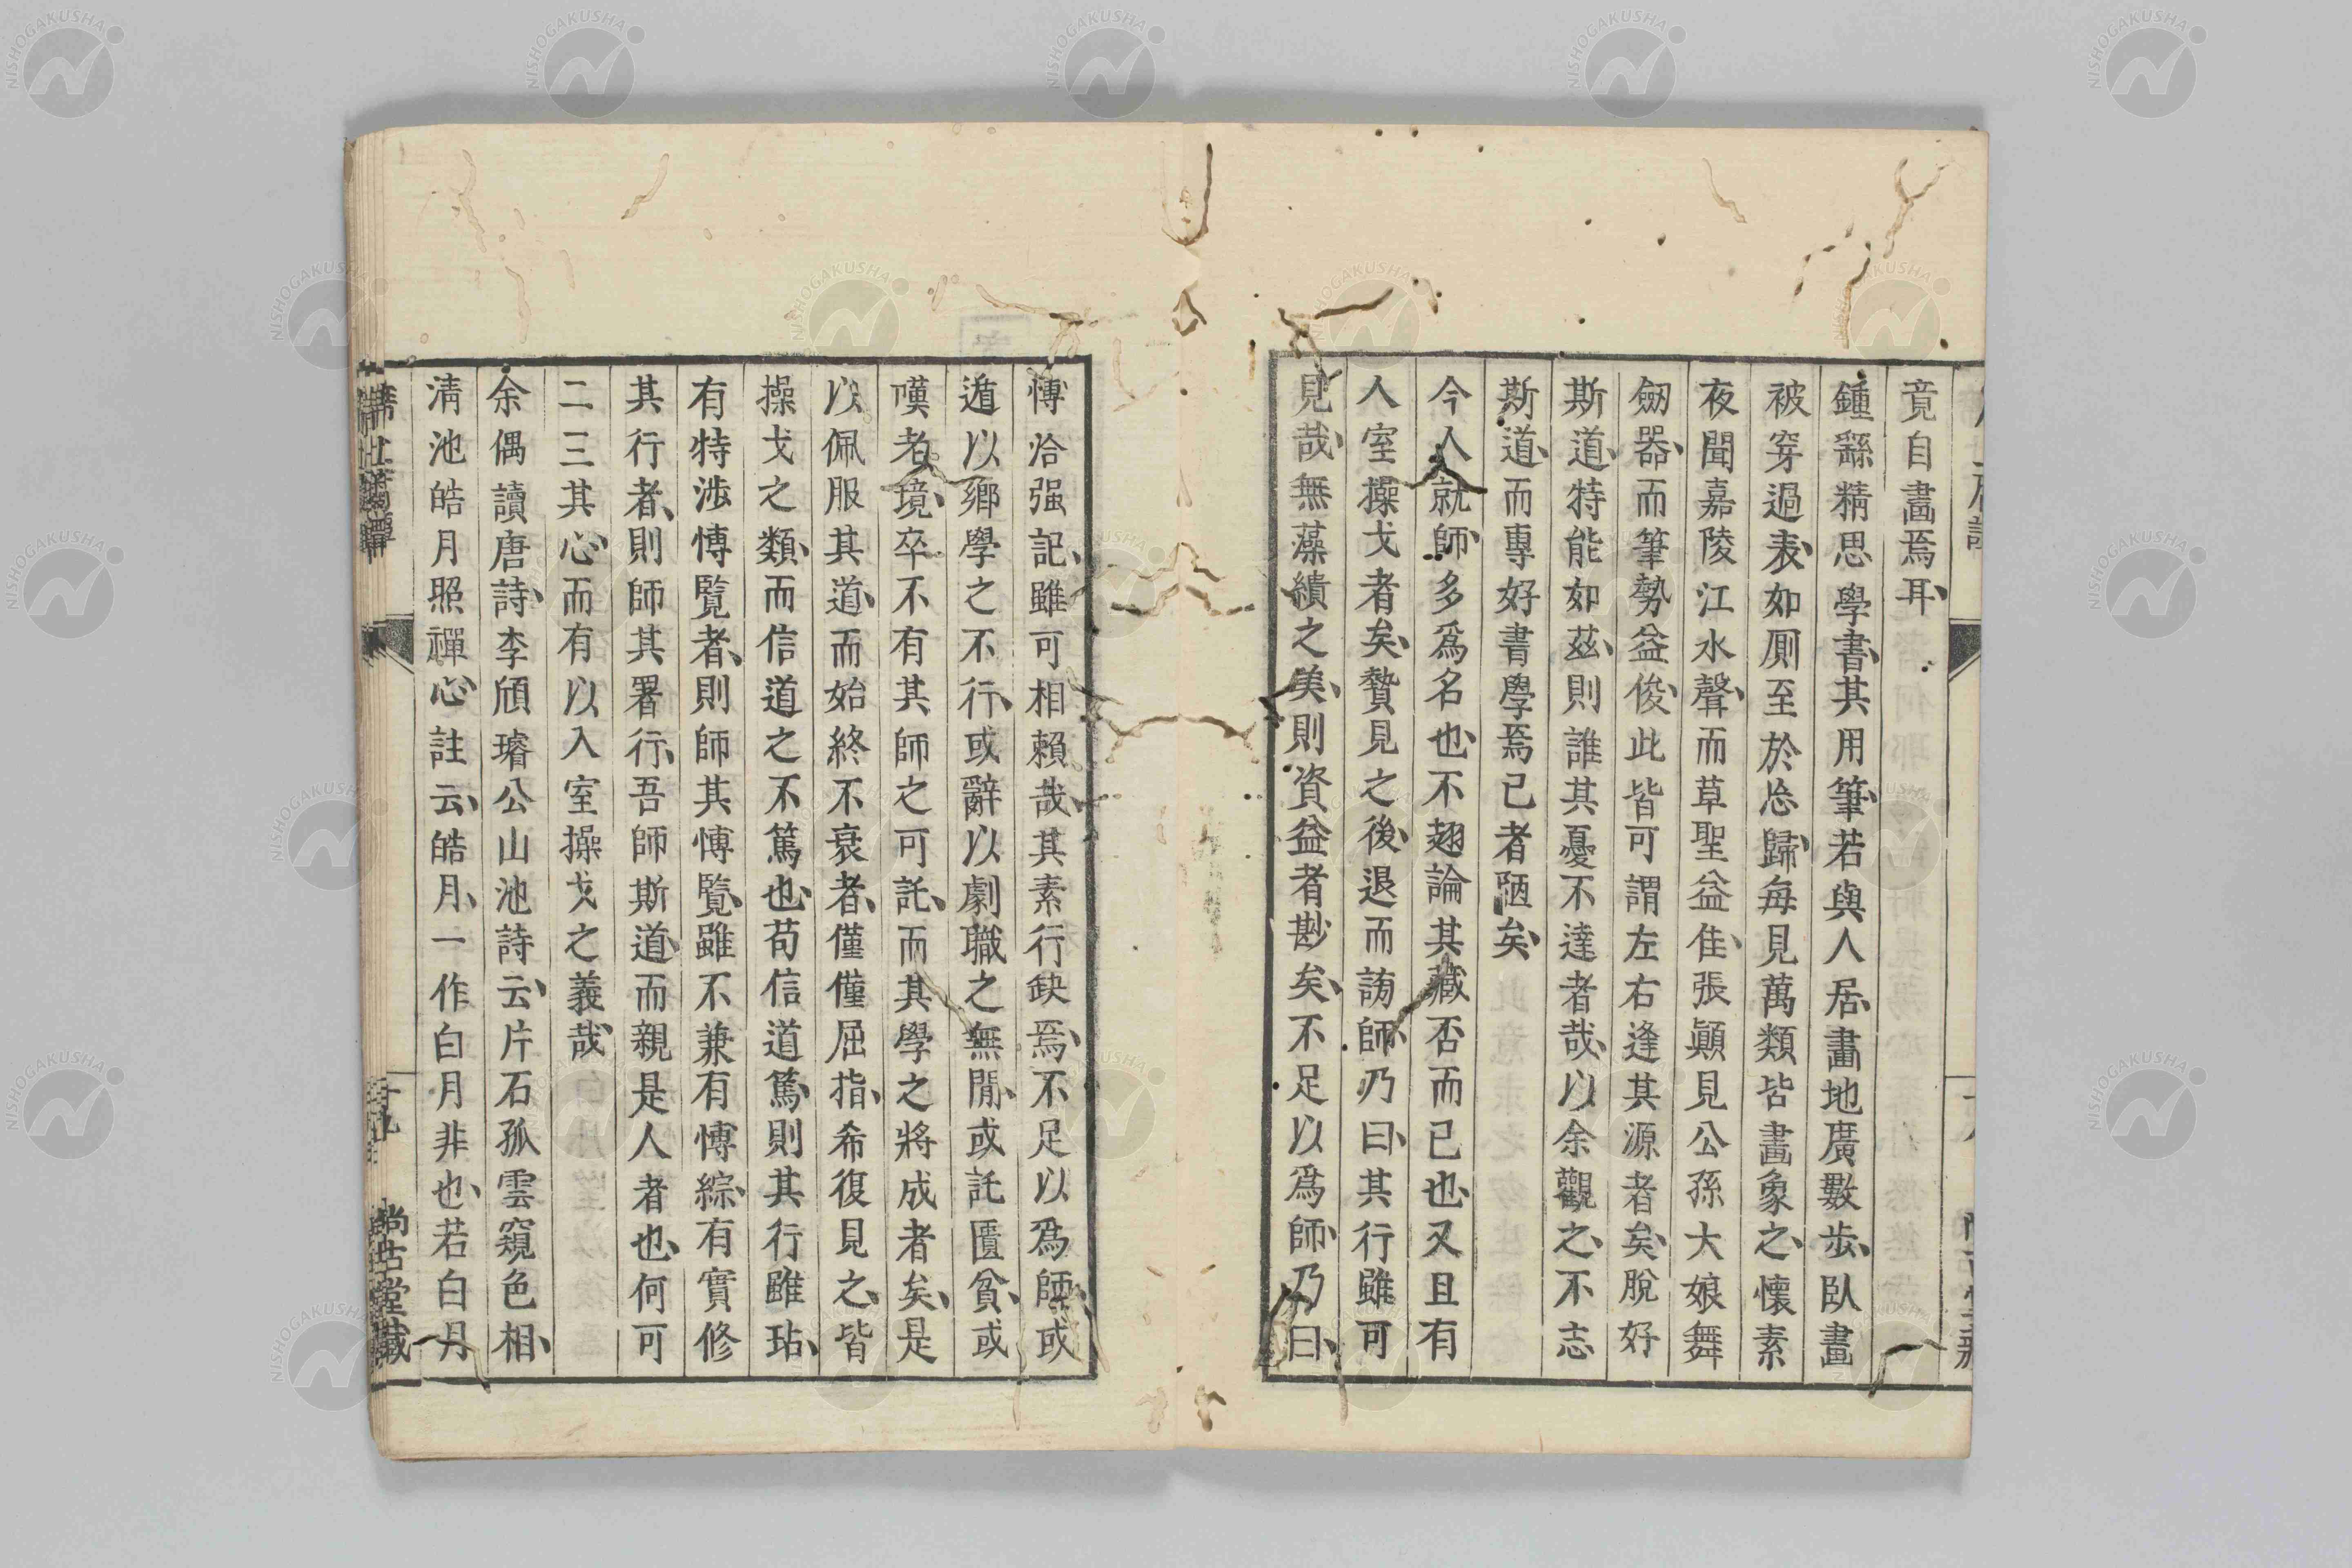 竟自畫焉耳、
鍾繇精思學書、其用筆、若與人居、畫地廣數步、臥畫
被穿過表、如厠至於忩歸、每見萬類皆畫象之、懷素
夜聞嘉陵江水聲、而草聖益佳、張顚見公孫大娘舞
劔器、而筆勢益俊、此皆可謂左右逢其源者矣、脫好
斯道、特能如茲、則誰其憂不達者哉、以余觀之、不志
斯道、而專好書學焉已者陋矣、
今人就師、多爲名也、不翅論其藏否而已也、又且有
人室操戈者矣、贄見之後、退而謗師、乃曰、其行雖可
見哉、無藻繢之美、則資益者尠矣、不足以爲師、乃曰、
愽洽强記、雖可相賴哉、其素行缺焉、不足以爲師、或
遁以鄉學之不行、或辭以劇職之無閒、或託匱貧、或
嘆老境、卒不有其師之可託、而其學之將成者矣、是
以佩服其道、而始終不衰者、僅僅屈指、希復見之、皆
操戈之類、而信道之不篤也、苟信道篤、則其行雖玷、
有特涉愽覽者、則師其愽覽、雖不兼有愽綜、有實修
其行者、則師其畧行、吾師斯道、而親是人者也、何可
二三其心、而有以入室操戈之義哉
余偶讀唐詩、李頎璿公山池詩云、片石孤雲窺色相、
淸池皓月照禪心、註云、皓月、一作白月非也、若白月
十九
尚古堂藏